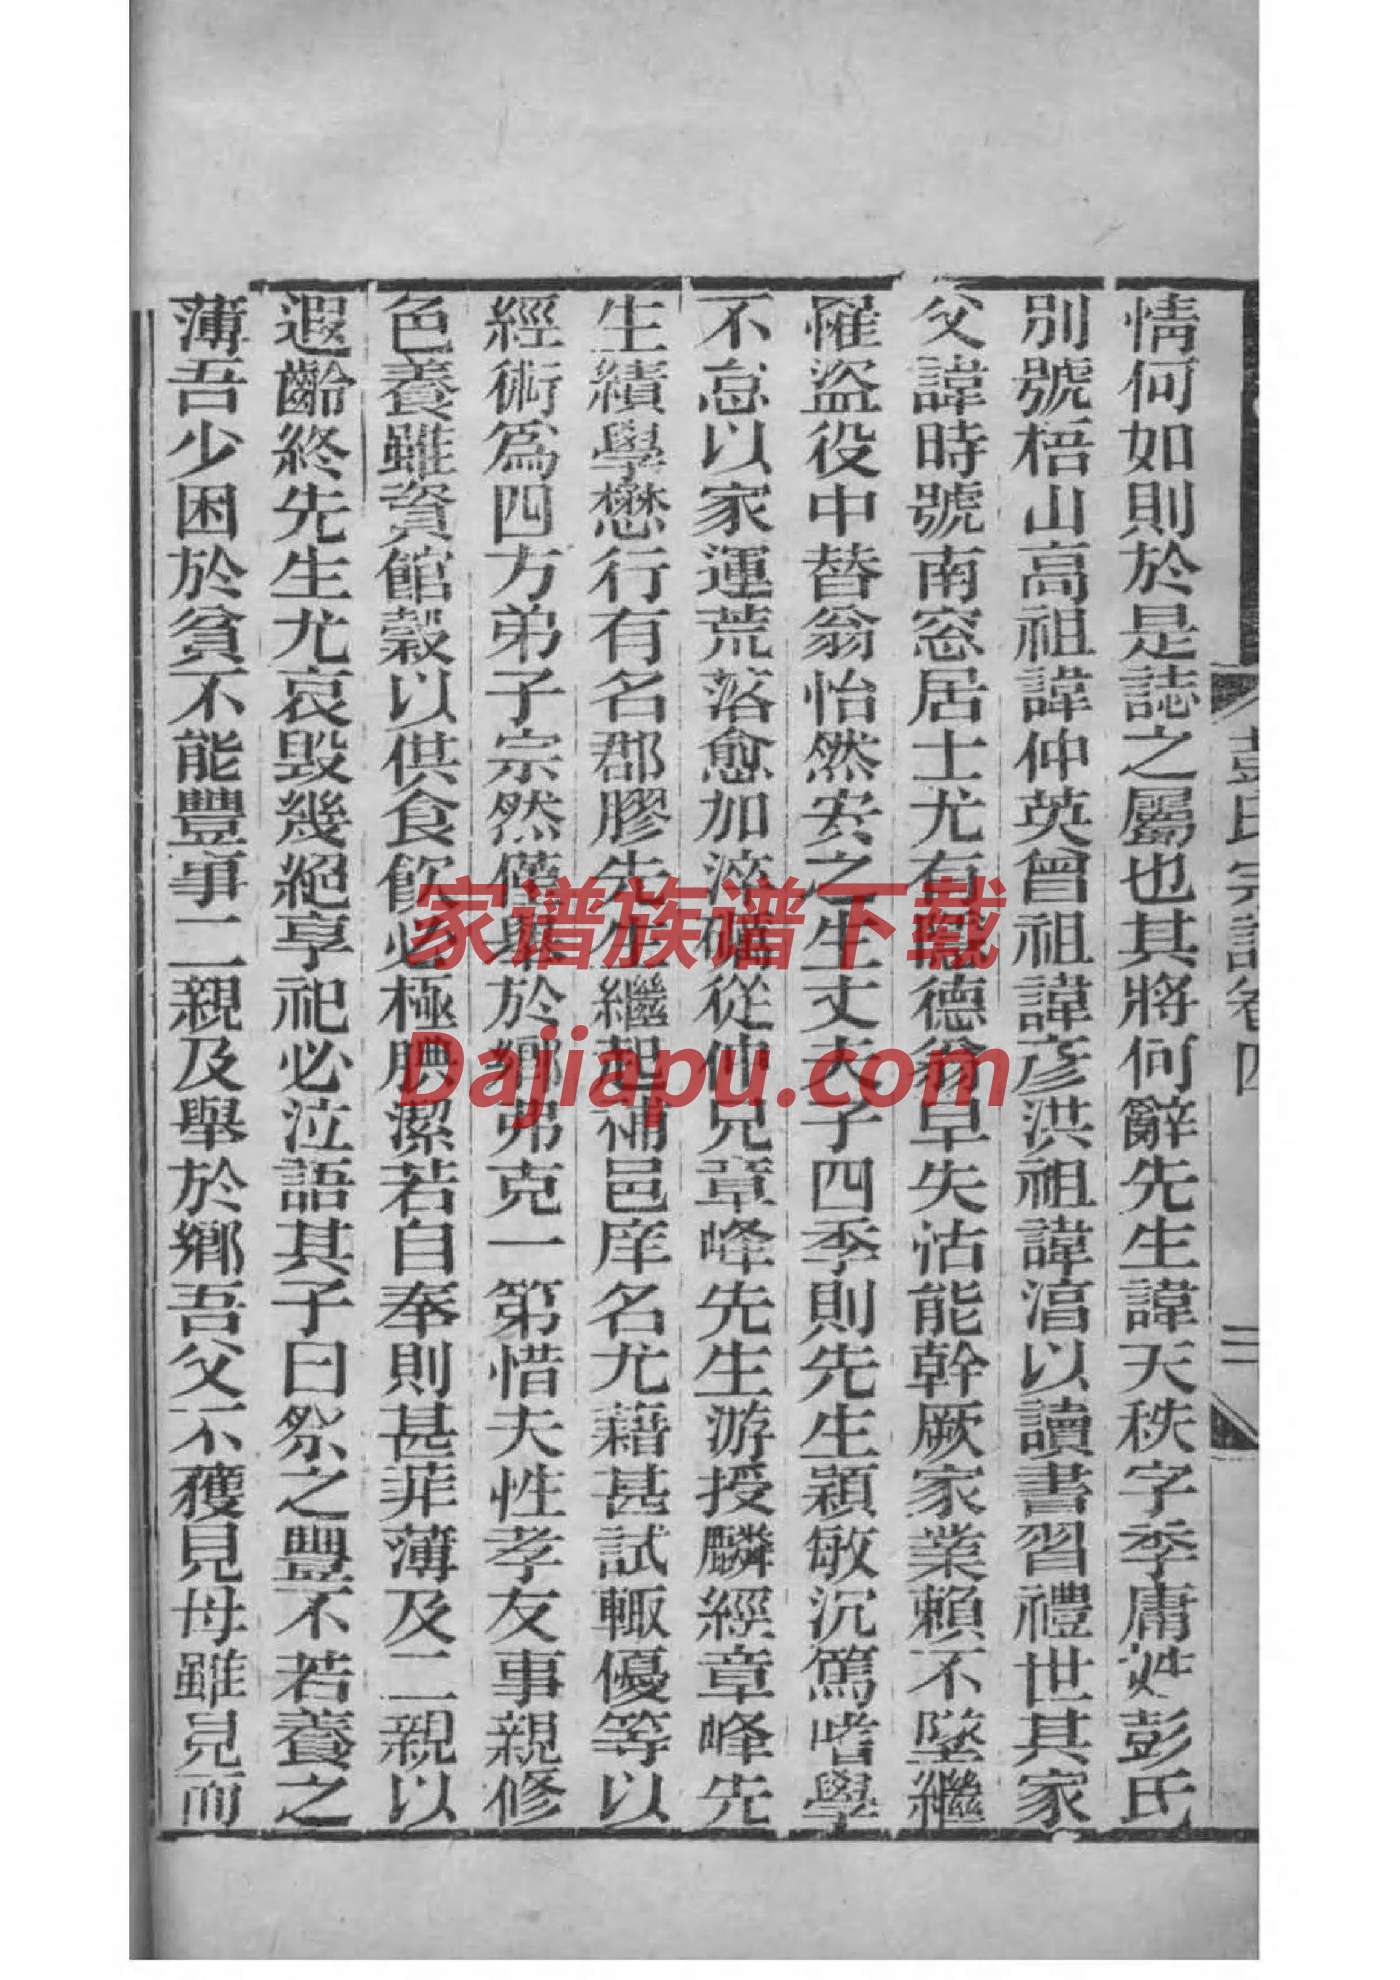 彭氏宗譜卷四
二
情何如則於是誌之屬也其將何辭先生諱天秩字季庸姓彭氏
別號梧山高祖諱仲英曾祖諱彥洪祖諱淯以讀書習禮世其家
父諱時號南窓居士尤有隱德翁早失怙能幹厥家業賴不墜繼
罹盜役中替翁怡然安之生丈夫子四季則先生穎敏沉篤嗜學
不怠以家運荒落愈加淬礪從仲兄章峰先生游授麟經章峰先
生績學懋行有名郡膠先生繼起補邑庠名尤藉甚試輙優等以
經術爲四方弟子宗然僅舉於鄉弗克一第惜夫性孝友事親修
色養雖資館穀以供食飲必極腆潔若自奉則甚菲薄及二親以
遐齡終先生尤哀毀幾絕享祀必泣語其子曰祭之豐不若養之
薄吾少困於貧不能豐事二親及舉於鄉吾父不獲見母雖見而
家谱族谱下载
Dajiapu.com